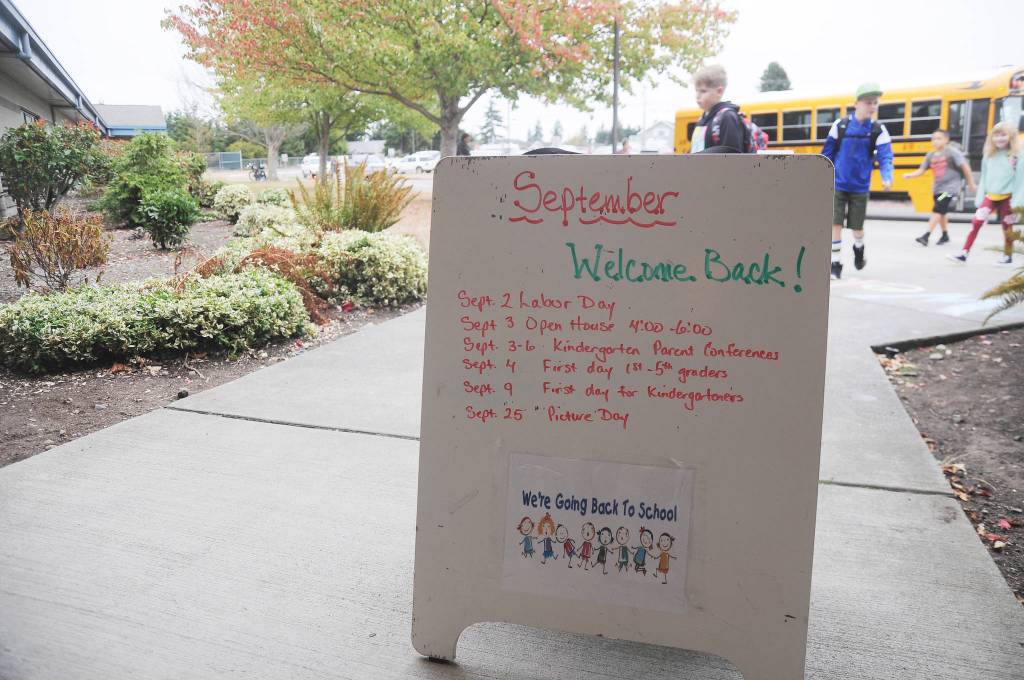 September
Welcome Back!
Sept. 2 Labor Day
Sept 3 Open House 4:00-6:00
Sept. 3-6 Kindergarten Parent Conferences
Sept. 4 First day 1st-5th graders
Sept. 9 First day for Kindergartoners
Sept. 25 Picture Day
We're Going Back To School